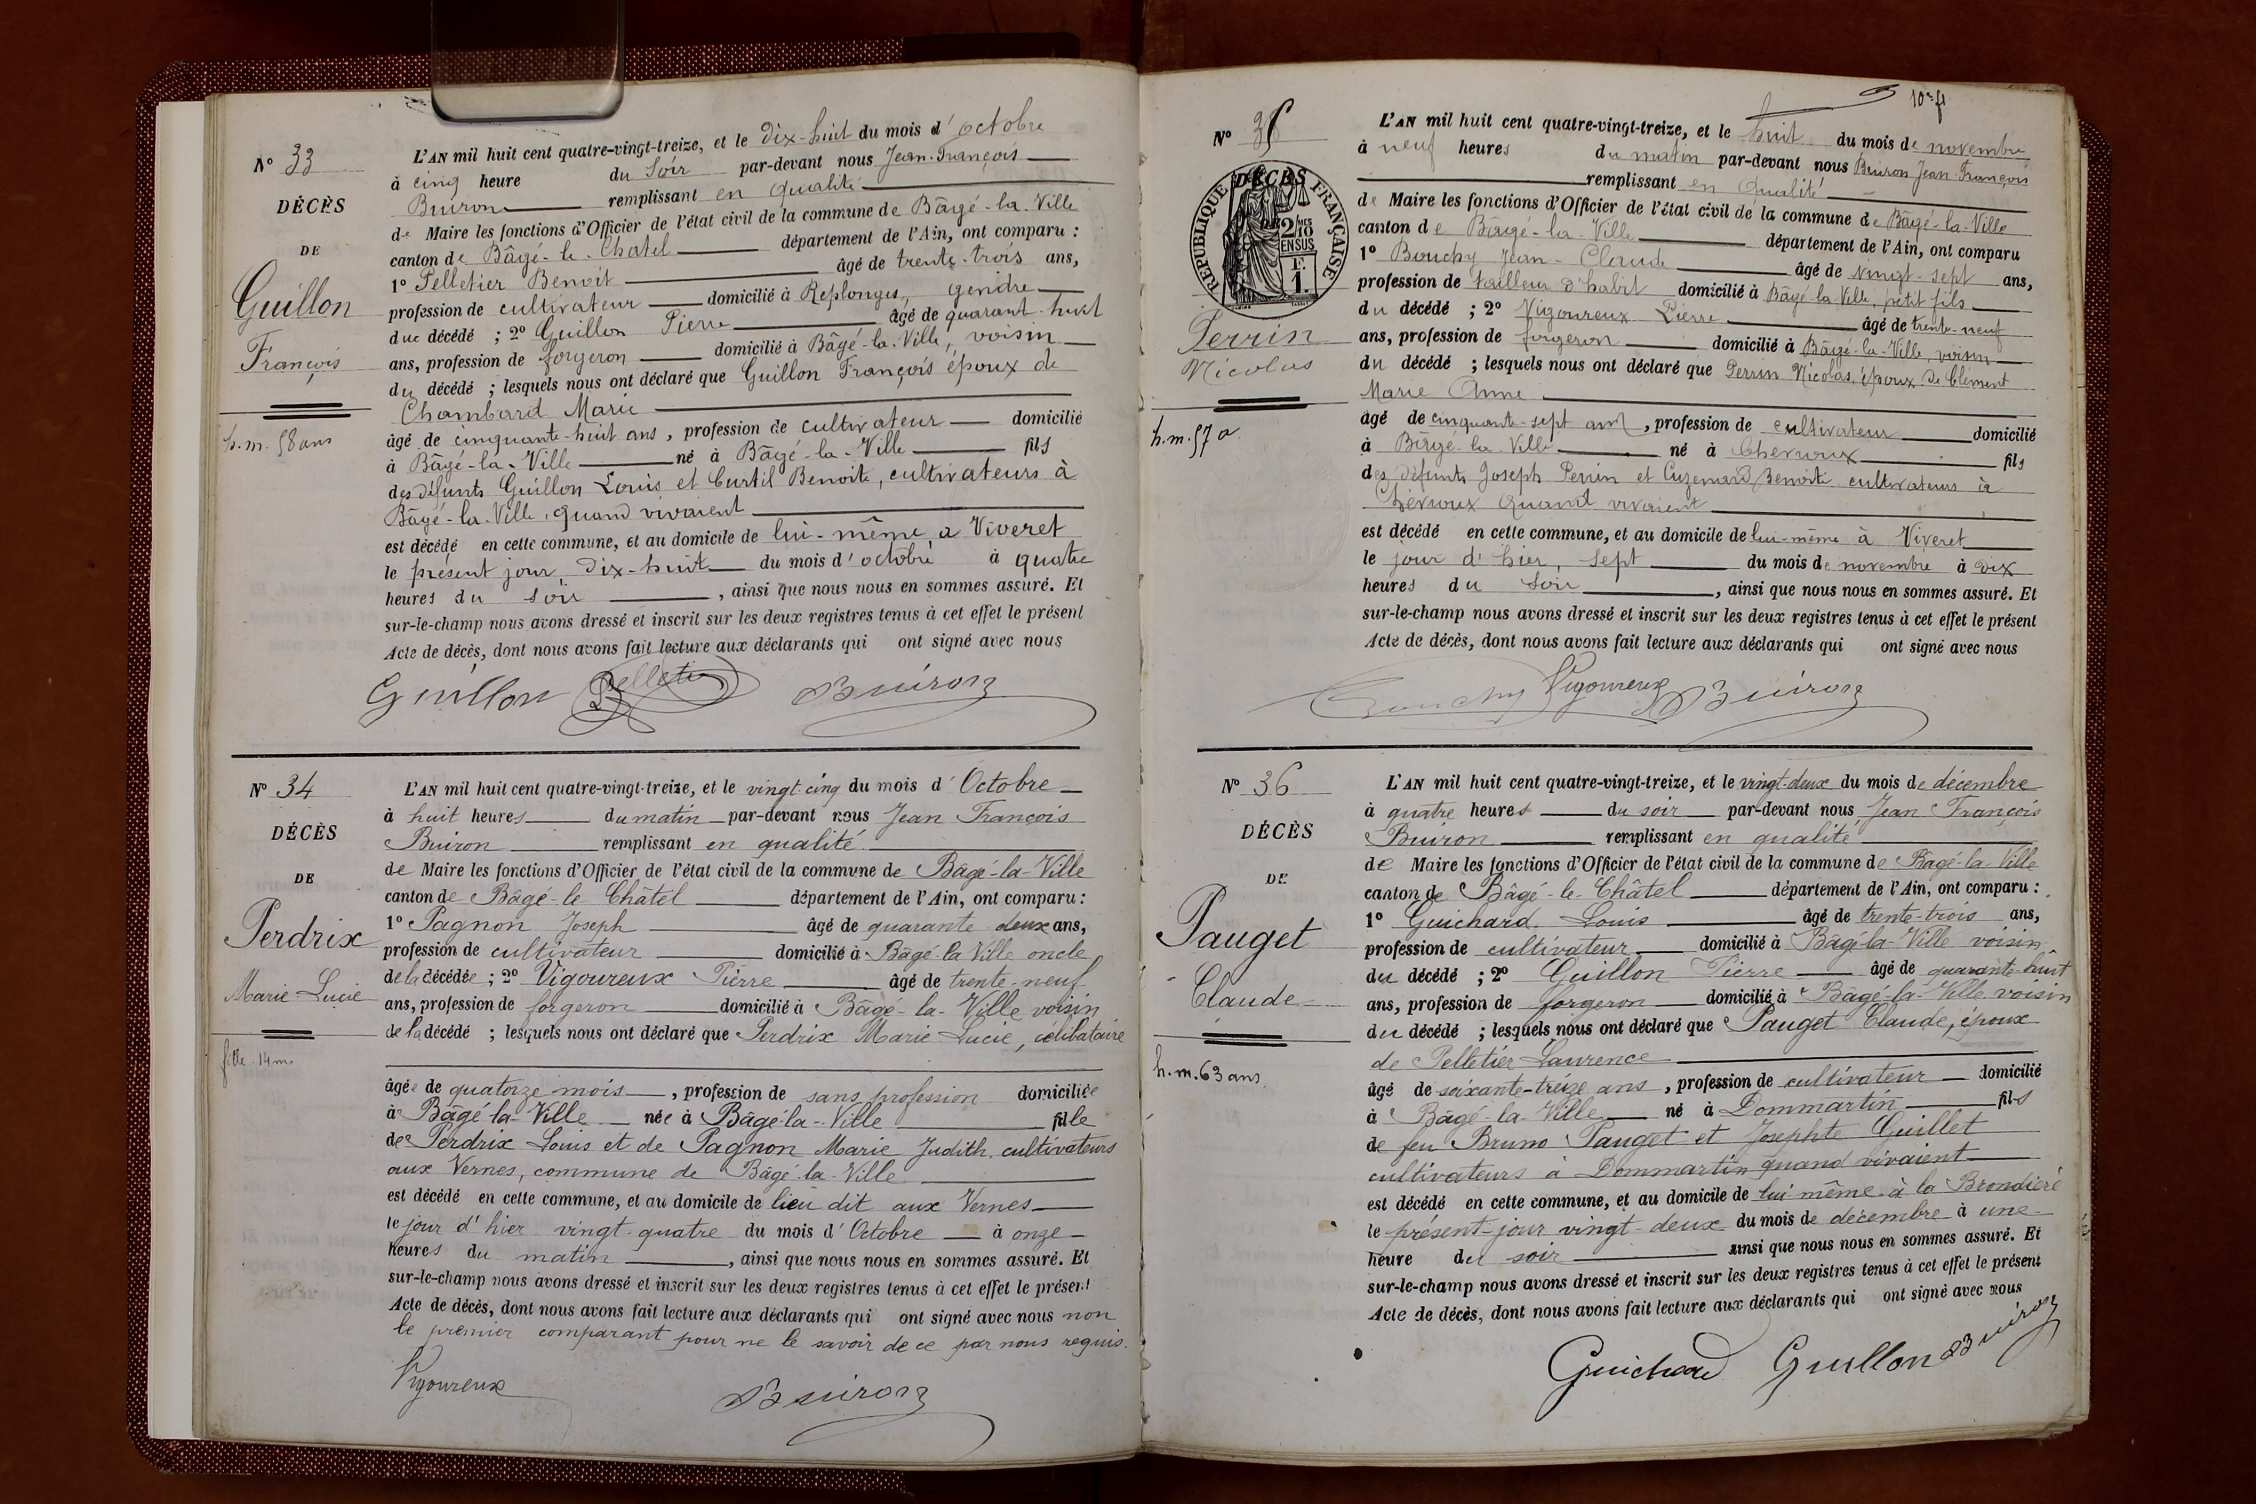 N° 33
DÉCÈS
DE
Guillon
François
h. m. 58 ans
L'AN mil huit cent quatre-vingt-treize, et le dix-huit du mois d'octobre
à cinq heure du soir par-devant nous Jean-François
Buiron remplissant en qualité
de Maire les fonctions d'Officier de l'état civil de la commune de Bâgé-la-Ville
canton de Bâgé-le-Chatel département de l'Ain, ont comparu :
1° Pelletier Benoit âgé de trente-trois ans,
profession de cultivateur domicilié à Replonges, gendre
du décédé ; 2° Guillon Pierre âgé de quarant-huit
ans, profession de forgeron domicilié à Bâgé-la-Ville, voisin
du décédé ; lesquels nous ont déclaré que Guillon François époux de
Chambard Marie
âgé de cinquante-huit ans, profession de cultivateur domicilié
à Bâgé-la-Ville né à Bâgé-la-Ville fils
des défunts Guillon Louis et Curtil Benoite, cultivateurs à
Bâgé-la-Ville, quand vivaient
est décédé en cette commune, et au domicile de lui-même à Viveret
le présent jour dix-huit du mois d'octobre à quatre
heures du soir, ainsi que nous nous en sommes assuré. Et
sur-le-champ nous avons dressé et inscrit sur les deux registres tenus à cet effet le présent
Acte de décès, dont nous avons fait lecture aux déclarants qui ont signé avec nous
Guillon Pelletier Buiron
N° 34
DÉCÈS
DE
Perdrix
Marie Lucie
fille 14 m.
L'AN mil huit cent quatre-vingt-treize, et le vingt-cinq du mois d'Octobre
à huit heures du matin par-devant nous Jean François
Buiron remplissant en qualité
de Maire les fonctions d'Officier de l'état civil de la commune de Bâgé-la-Ville
canton de Bâgé-le Châtel département de l'Ain, ont comparu :
1° Pagnon Joseph âgé de quarante deux ans,
profession de cultivateur domicilié à Bâgé-la Ville oncle
de la décédée ; 2° Vigoureux Pierre âgé de trente-neuf
ans, profession de forgeron domicilié à Bâgé-la-Ville voisin
de la décédé ; lesquels nous ont déclaré que Perdrix Marie Lucie, célibataire
âgée de quatorze mois, profession de sans profession domiciliée
à Bâgé-la-Ville née à Bâgé-la-Ville fille
de Perdrix Louis et de Pagnon Marie Judith, cultivateurs
aux Vernes, commune de Bâgé-la-Ville
est décédé en cette commune, et au domicile de lieu dit aux Vernes
le jour d'hier vingt-quatre du mois d'Octobre à onze
heures du matin, ainsi que nous nous en sommes assuré. Et
sur-le-champ nous avons dressé et inscrit sur les deux registres tenus à cet effet le présent
Acte de décès, dont nous avons fait lecture aux déclarants qui ont signé avec nous non
le premier comparant pour ne le savoir de ce par nous requis.
Vigoureux Buiron
N° 35
RÉPUBLIQUE FRANÇAISE
2/10 EN SUS
F. 1.
DÉCÈS
DE
Perrin
Nicolas
h. m. 57 a.
L'AN mil huit cent quatre-vingt-treize, et le huit du mois de novembre
à neuf heures du matin par-devant nous Buiron Jean François
remplissant en qualité
de Maire les fonctions d'Officier de l'état civil de la commune de Bâgé-la-Ville
canton de Bâgé-la-Ville département de l'Ain, ont comparu
1° Bouchy Jean-Claude âgé de vingt-sept ans,
profession de tailleur d'habit domicilié à Bâgé-la-Ville, petit fils
du décédé ; 2° Vigoureux Pierre âgé de trente-neuf
ans, profession de forgeron domicilié à Bâgé-la-Ville, voisin
du décédé ; lesquels nous ont déclaré que Perrin Nicolas, époux de Clément
Marie Anne
âgé de cinquante-sept ans, profession de cultivateur domicilié
à Bâgé-la-Ville né à Chevroux fils
des défunts Joseph Perrin et Benoite cultivateurs à
Chevroux quand vivaient
est décédé en cette commune, et au domicile de lui-même à Viveret
le jour d'hier, sept du mois de novembre à dix
heures du soir, ainsi que nous nous en sommes assuré. Et
sur-le-champ nous avons dressé et inscrit sur les deux registres tenus à cet effet le présent
Acte de décès, dont nous avons fait lecture aux déclarants qui ont signé avec nous
Bouchy Vigoureux Buiron
N° 36
DÉCÈS
DE
Pauget
Claude
h. m. 63 ans.
L'AN mil huit cent quatre-vingt-treize, et le vingt-deux du mois de décembre
à quatre heures du soir par-devant nous Jean François
Buiron remplissant en qualité
de Maire les fonctions d'Officier de l'état civil de la commune de Bâgé-la-Ville
canton de Bâgé-le-Châtel département de l'Ain, ont comparu :
1° Guichard Louis âgé de trente-trois ans,
profession de cultivateur domicilié à Bâgé-la-Ville voisin
du décédé ; 2° Guillon Pierre âgé de quarante-huit
ans, profession de forgeron domicilié à Bâgé-la-Ville voisin
du décédé ; lesquels nous ont déclaré que Pauget Claude, époux
de Pelletier Laurence
âgé de soixante-treize ans, profession de cultivateur domicilié
à Bâgé-la-Ville né à Dommartin fils
de feu Bruno Pauget et Josephte Guillet
cultivateurs à Dommartin quand vivaient
est décédé en cette commune, et au domicile de lui même à la Brondière
le présent jour vingt-deux du mois de décembre à une
heure du soir ainsi que nous nous en sommes assuré. Et
sur-le-champ nous avons dressé et inscrit sur les deux registres tenus à cet effet le présent
Acte de décès, dont nous avons fait lecture aux déclarants qui ont signé avec nous
Guichard Guillon Buiron